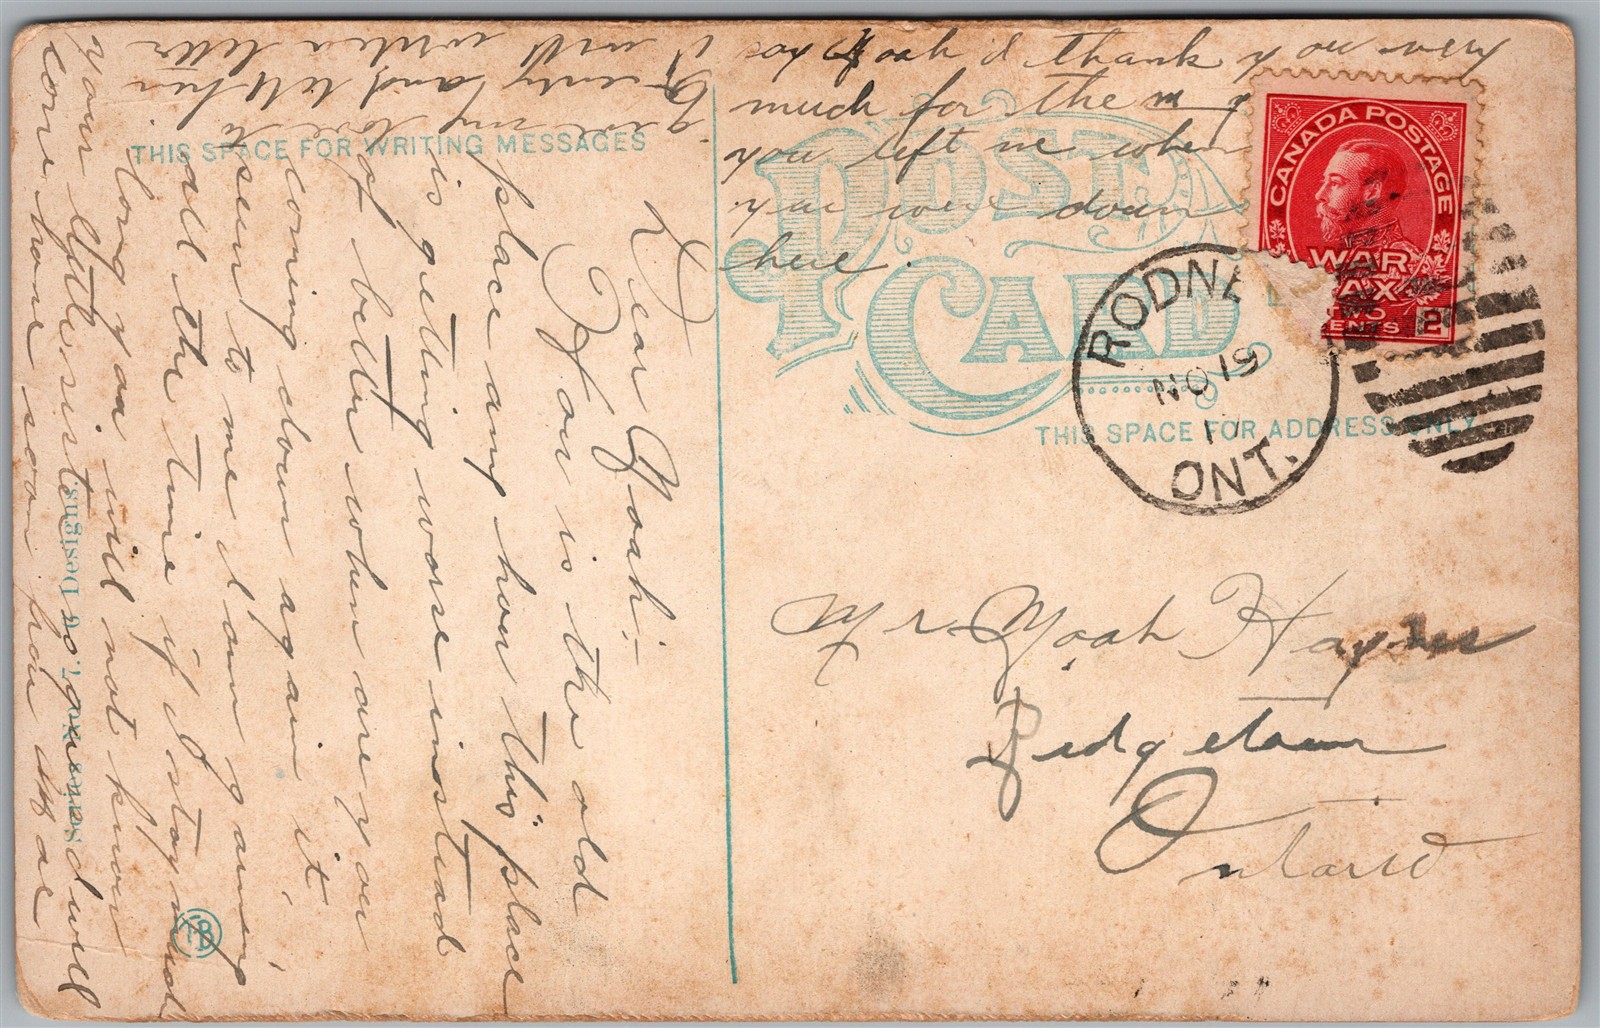 THIS SPACE FOR WRITING MESSAGES
POST CARD
THIS SPACE FOR ADDRESS ONLY
CANADA POSTAGE
WAR
TAX
CENTS 2
RODNE
NO 19
17
ONT.
Mr. Noah Haynes
Ridgetown
Ontario
Dear Noah:-
How is the old
place any how this "place
is getting worse instead
of better when are you
coming down again it
seem to me I am going
all the time if I stay
long you will not know
your little sister and will
come home soon from
give my love to
and tell her
I will write a letter
Noah I thank you very
much for the
you left me when
you were down
here.
Series No. 7, 6 Designs.
TB